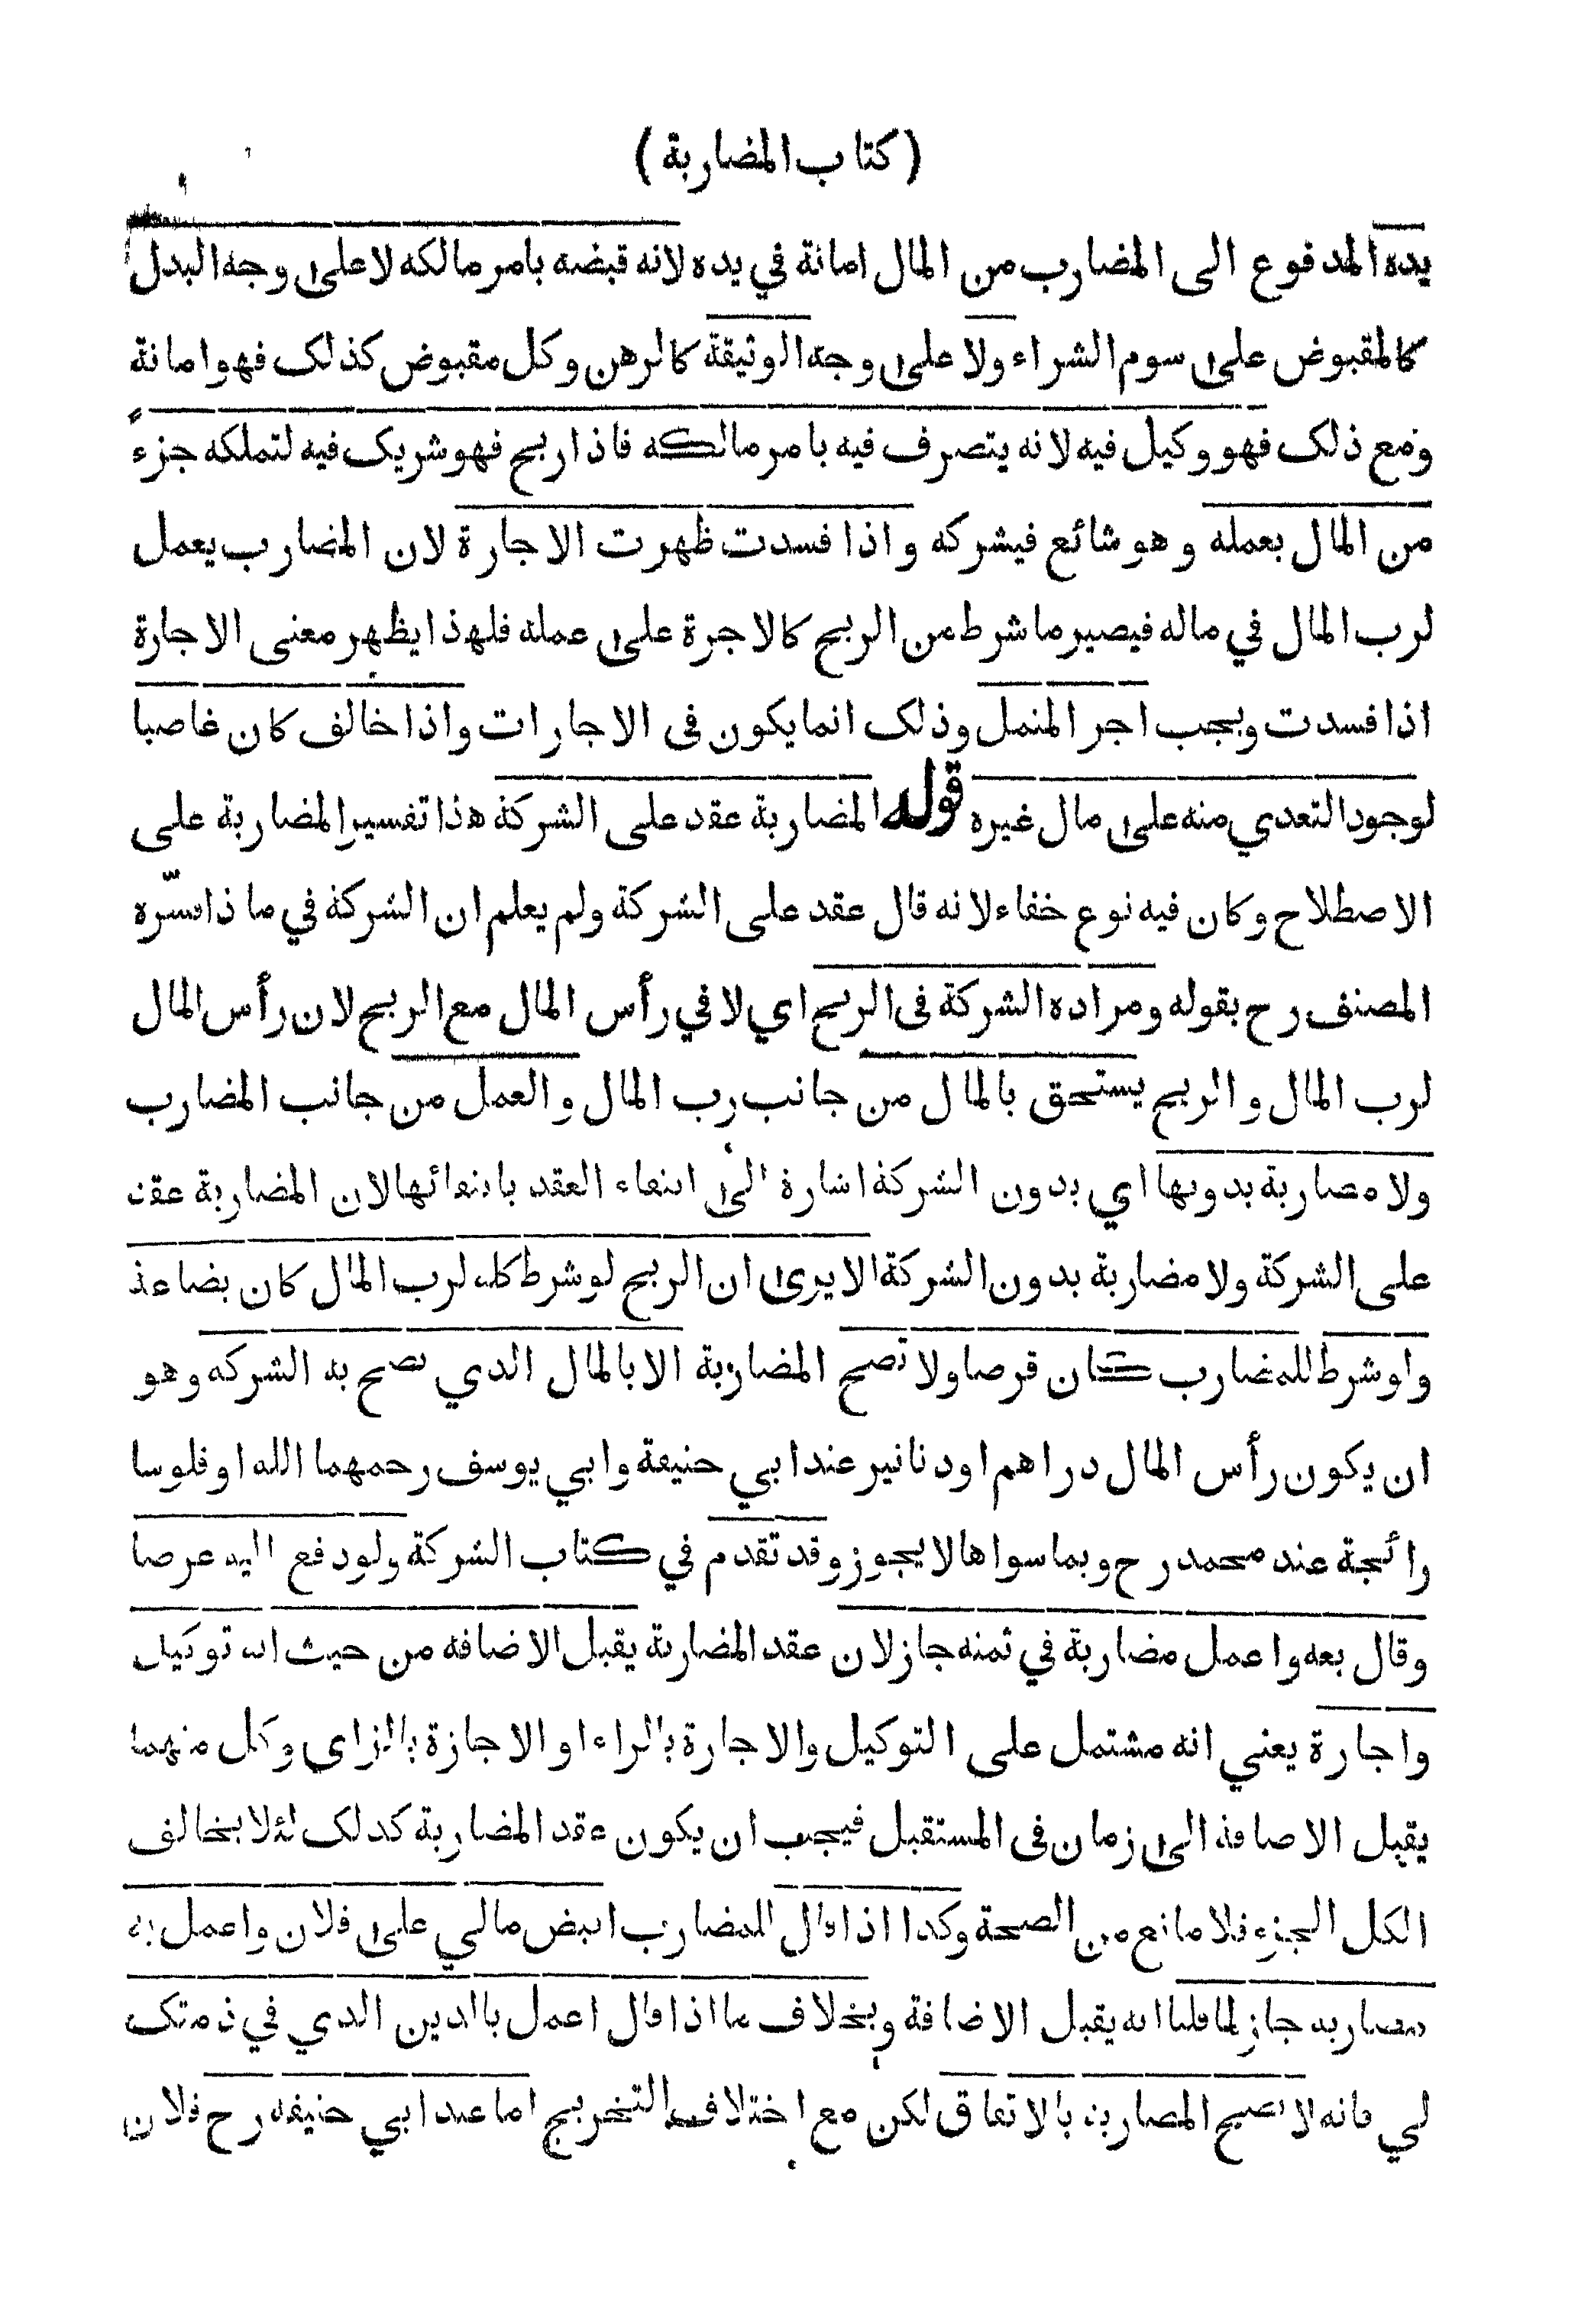 ( كتاب المضاربة )
يده المدفوع الى المضارب من المال امانة في يده لانه قبضه بامر مالكه لا على وجه البدل
كالمقبوض على سوم الشراء ولا على وجه الوثيقة كالرهن وكل مقبوض كذلك فهو امانة
ومع ذلك فهو وكيل فيه لانه يتصرف فيه بامر مالكه فاذا ربح فهو شريك فيه لتملكه جزءً
من المال بعمله وهو شائع فيشركه واذا فسدت ظهرت الاجارة لان المضارب يعمل
لرب المال في ماله فيصير ما شرط من الربح كالاجرة على عمله فلهذا يظهر معنى الاجارة
اذا فسدت ويجب اجر المثل وذلك انما يكون في الاجارات واذا خالف كان غاصبا
لوجود التعدي منه على مال غيره قوله المضاربة عقد على الشركة هذا تفسير المضاربة على
الاصطلاح وكان فيه نوع خفاء لانه قال عقد على الشركة ولم يعلم ان الشركة في ما ذا فسّره
المصنف رح بقوله ومراده الشركة في الربح اي لا في رأس المال مع الربح لان رأس المال
لرب المال والربح يستحق بالمال من جانب رب المال والعمل من جانب المضارب
ولا مضاربة بدونها اي بدون الشركة اشارة الى انتفاء العقد بانتفائها لان المضاربة عقد
على الشركة ولا مضاربة بدون الشركة الا يرى ان الربح لو شرط كله لرب المال كان بضاعة
ولو شرط للمضارب كان قرضا ولا تصح المضاربة الا بالمال الذي تصح به الشركة وهو
ان يكون رأس المال دراهم او دنانير عند ابي حنيفة وابي يوسف رحمهما الله او فلوسا
رائجة عند محمد رح وبما سواها لا يجوز وقد تقدم في كتاب الشركة ولو دفع اليه عرضا
وقال بعه واعمل مضاربة في ثمنه جاز لان عقد المضاربة يقبل الاضافة من حيث انه توكيل
واجارة يعني انه مشتمل على التوكيل والاجارة بالراء او الاجازة بالزاي وكل منهما
يقبل الاضافة الى زمان في المستقبل فيجب ان يكون عقد المضاربة كذلك لئلا يخالف
الكل الجزء فلا مانع من الصحة وكذا اذا قال للمضارب اقبض مالي على فلان واعمل به
مضاربة جاز لما قلنا انه يقبل الاضافة وبخلاف ما اذا قال اعمل بالدين الذي في ذمتك
لي فانه لا تصح المضاربة بالاتفاق لكن مع اختلاف التخريج اما عند ابي حنيفة رح فلان